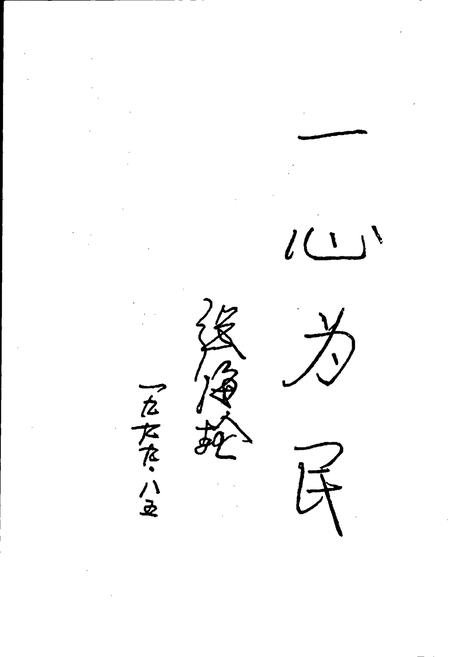 一心为民
张海
一九九九·八五